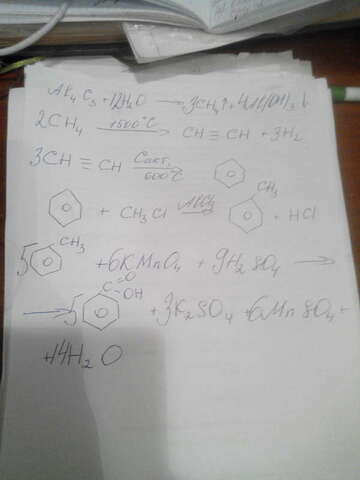 Al₄C₃ + 12H₂O → 3CH₄↑ + 4Al(OH)₃↓
2CH₄ 1500°C → CH ≡ CH + 3H₂
3CH ≡ CH Cакт. 600°C
+ CH₃Cl AlCl₃ CH₃ + HCl
5 CH₃ + 6KMnO₄ + 9H₂SO₄ →
→ 5 C O OH + 3K₂SO₄ + 6MnSO₄ +
+14H₂O